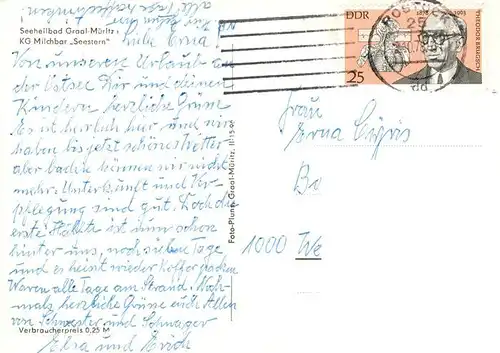 Seeheilbad Graal-Müritz
KG Milchbar „Seestern"
Liebe Erna
Von unserem Urlaub an
der Ostsee Dir und deinen
Kindern herzliche Grüße
Es ist herlich hier und wir
haben bis jetzt schönes Wetter
aber baden können wir nicht
mehr. Unterkunft und Ver-
pflegung sind gut. Doch die
erste Hälfte ist nun schon
hinter uns, noch sieben Tage
und es heist wieder Koffer packen
Waren alle Tage am Strand. Noch-
mals herzliche Grüsse euch Allen
von Schwester und Schwager
Elsa und Erich
Verbraucherpreis 0,25 M
Foto-Plump, Graal-Müritz, II-15-96
DDR
25
THEODOR BRUGSCH
ROSTOCK
25
Frau
Erna
Bo
1000 We